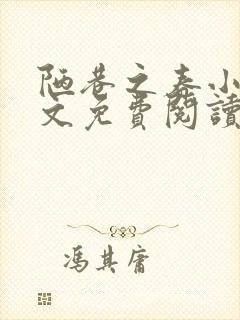 陋巷之春小
文免費閱讀
馮其庸